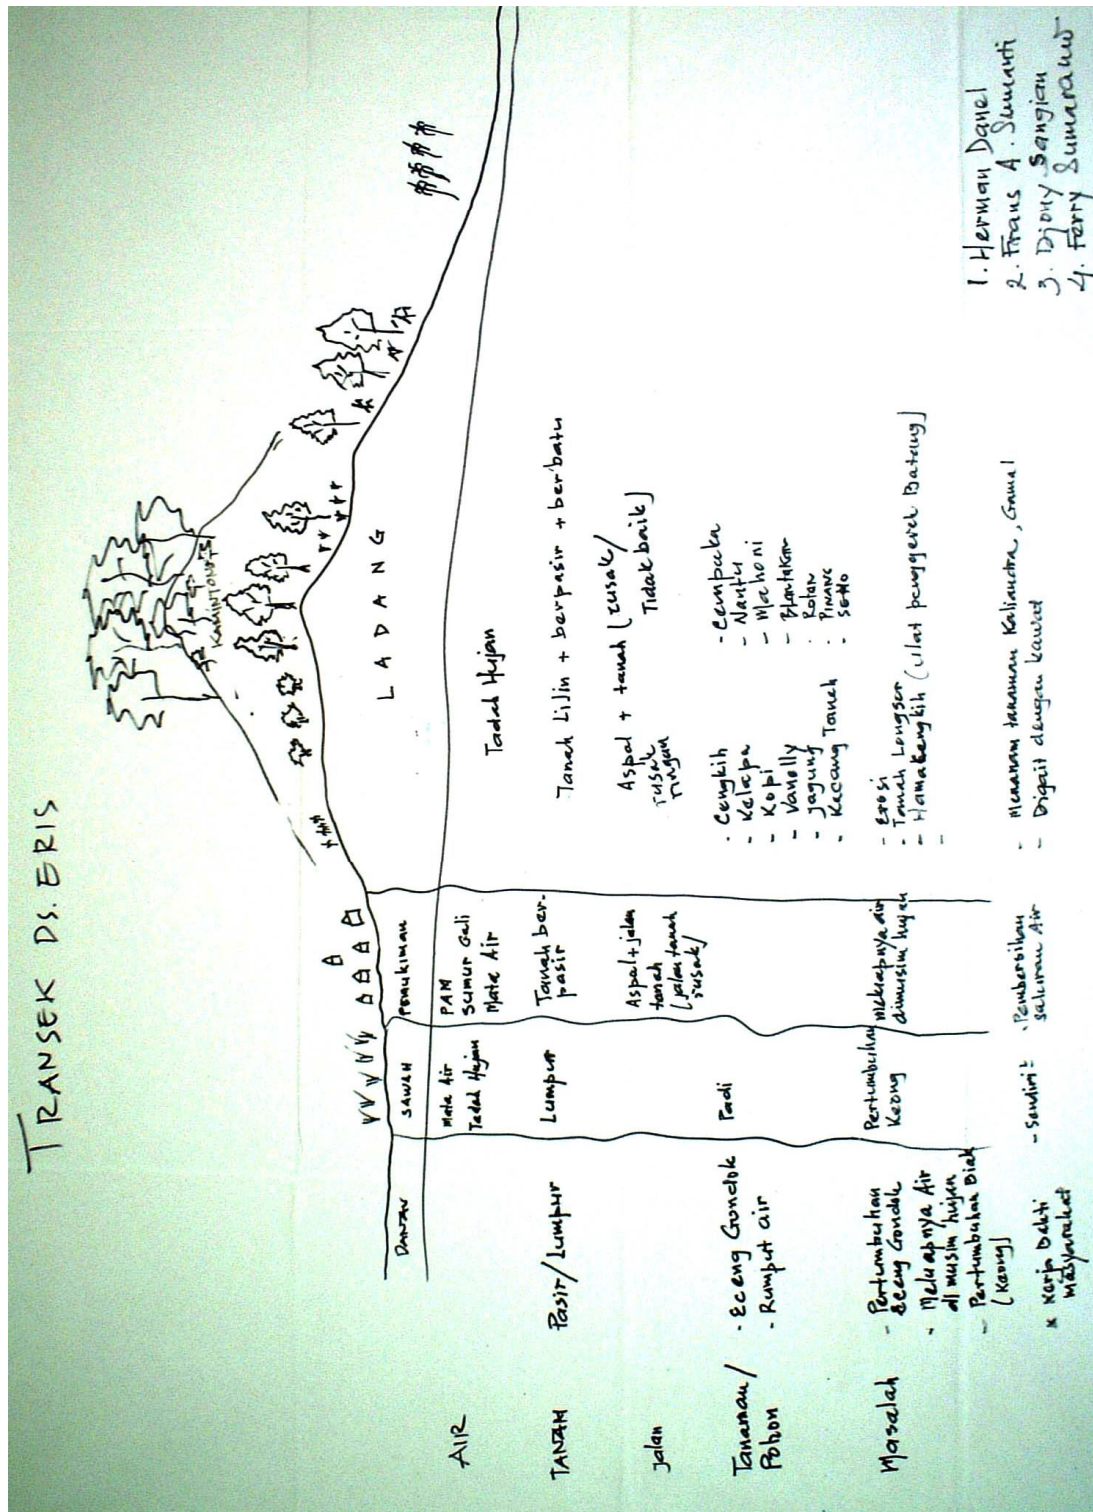 TRANSEK DS. ERIS
KAMINTONG
DANAU
SAWAH
PEMUKIMAN
LADANG
AIR
Mata Air
Tadah Hujan
PAM
Sumur Gali
Mata Air
Tadah Hujan
TANAH
Pasir/Lumpur
Lumpur
Tanah ber-
pasir
Tanah Lilin + berpasir + berbatu
Jalan
Aspal + jalan
tanah
(jalan tanah
rusak/
Aspal + tanah (rusak/
rusak
ringan
Tidak baik)
Tanaman/
Pohon
- Eceng Gondok
- Rumput air
Padi
- Cengkih
- Kelapa
- Kopi
- Vanelly
- Jagung
- Kacang Tanah
- Cempaka
- Nantu
- Mahoni
- Rotan
- PINANG
- SEHO
Masalah
- Pertumbuhan
Eceng Gondok
- Meluapnya Air
di musim hujan
- Pertumbuhan Biak
(Keong)
Pertumbuhan
Keong
Meluapnya air
dimusim hujan
- Erosi
- Tanah Longsor
- Hama Cengkih (Ulat penggerek Batang)
-
* Kerja Bakti
Masyarakat
- Pembersihan
saluran Air
- Menanam tanaman Kaliandra, Gamal
- Digait dengan kawat
1. Herman Danel
2. Frans A. Sumanti
3. Djony Sangian
4. Ferry Sumarauw